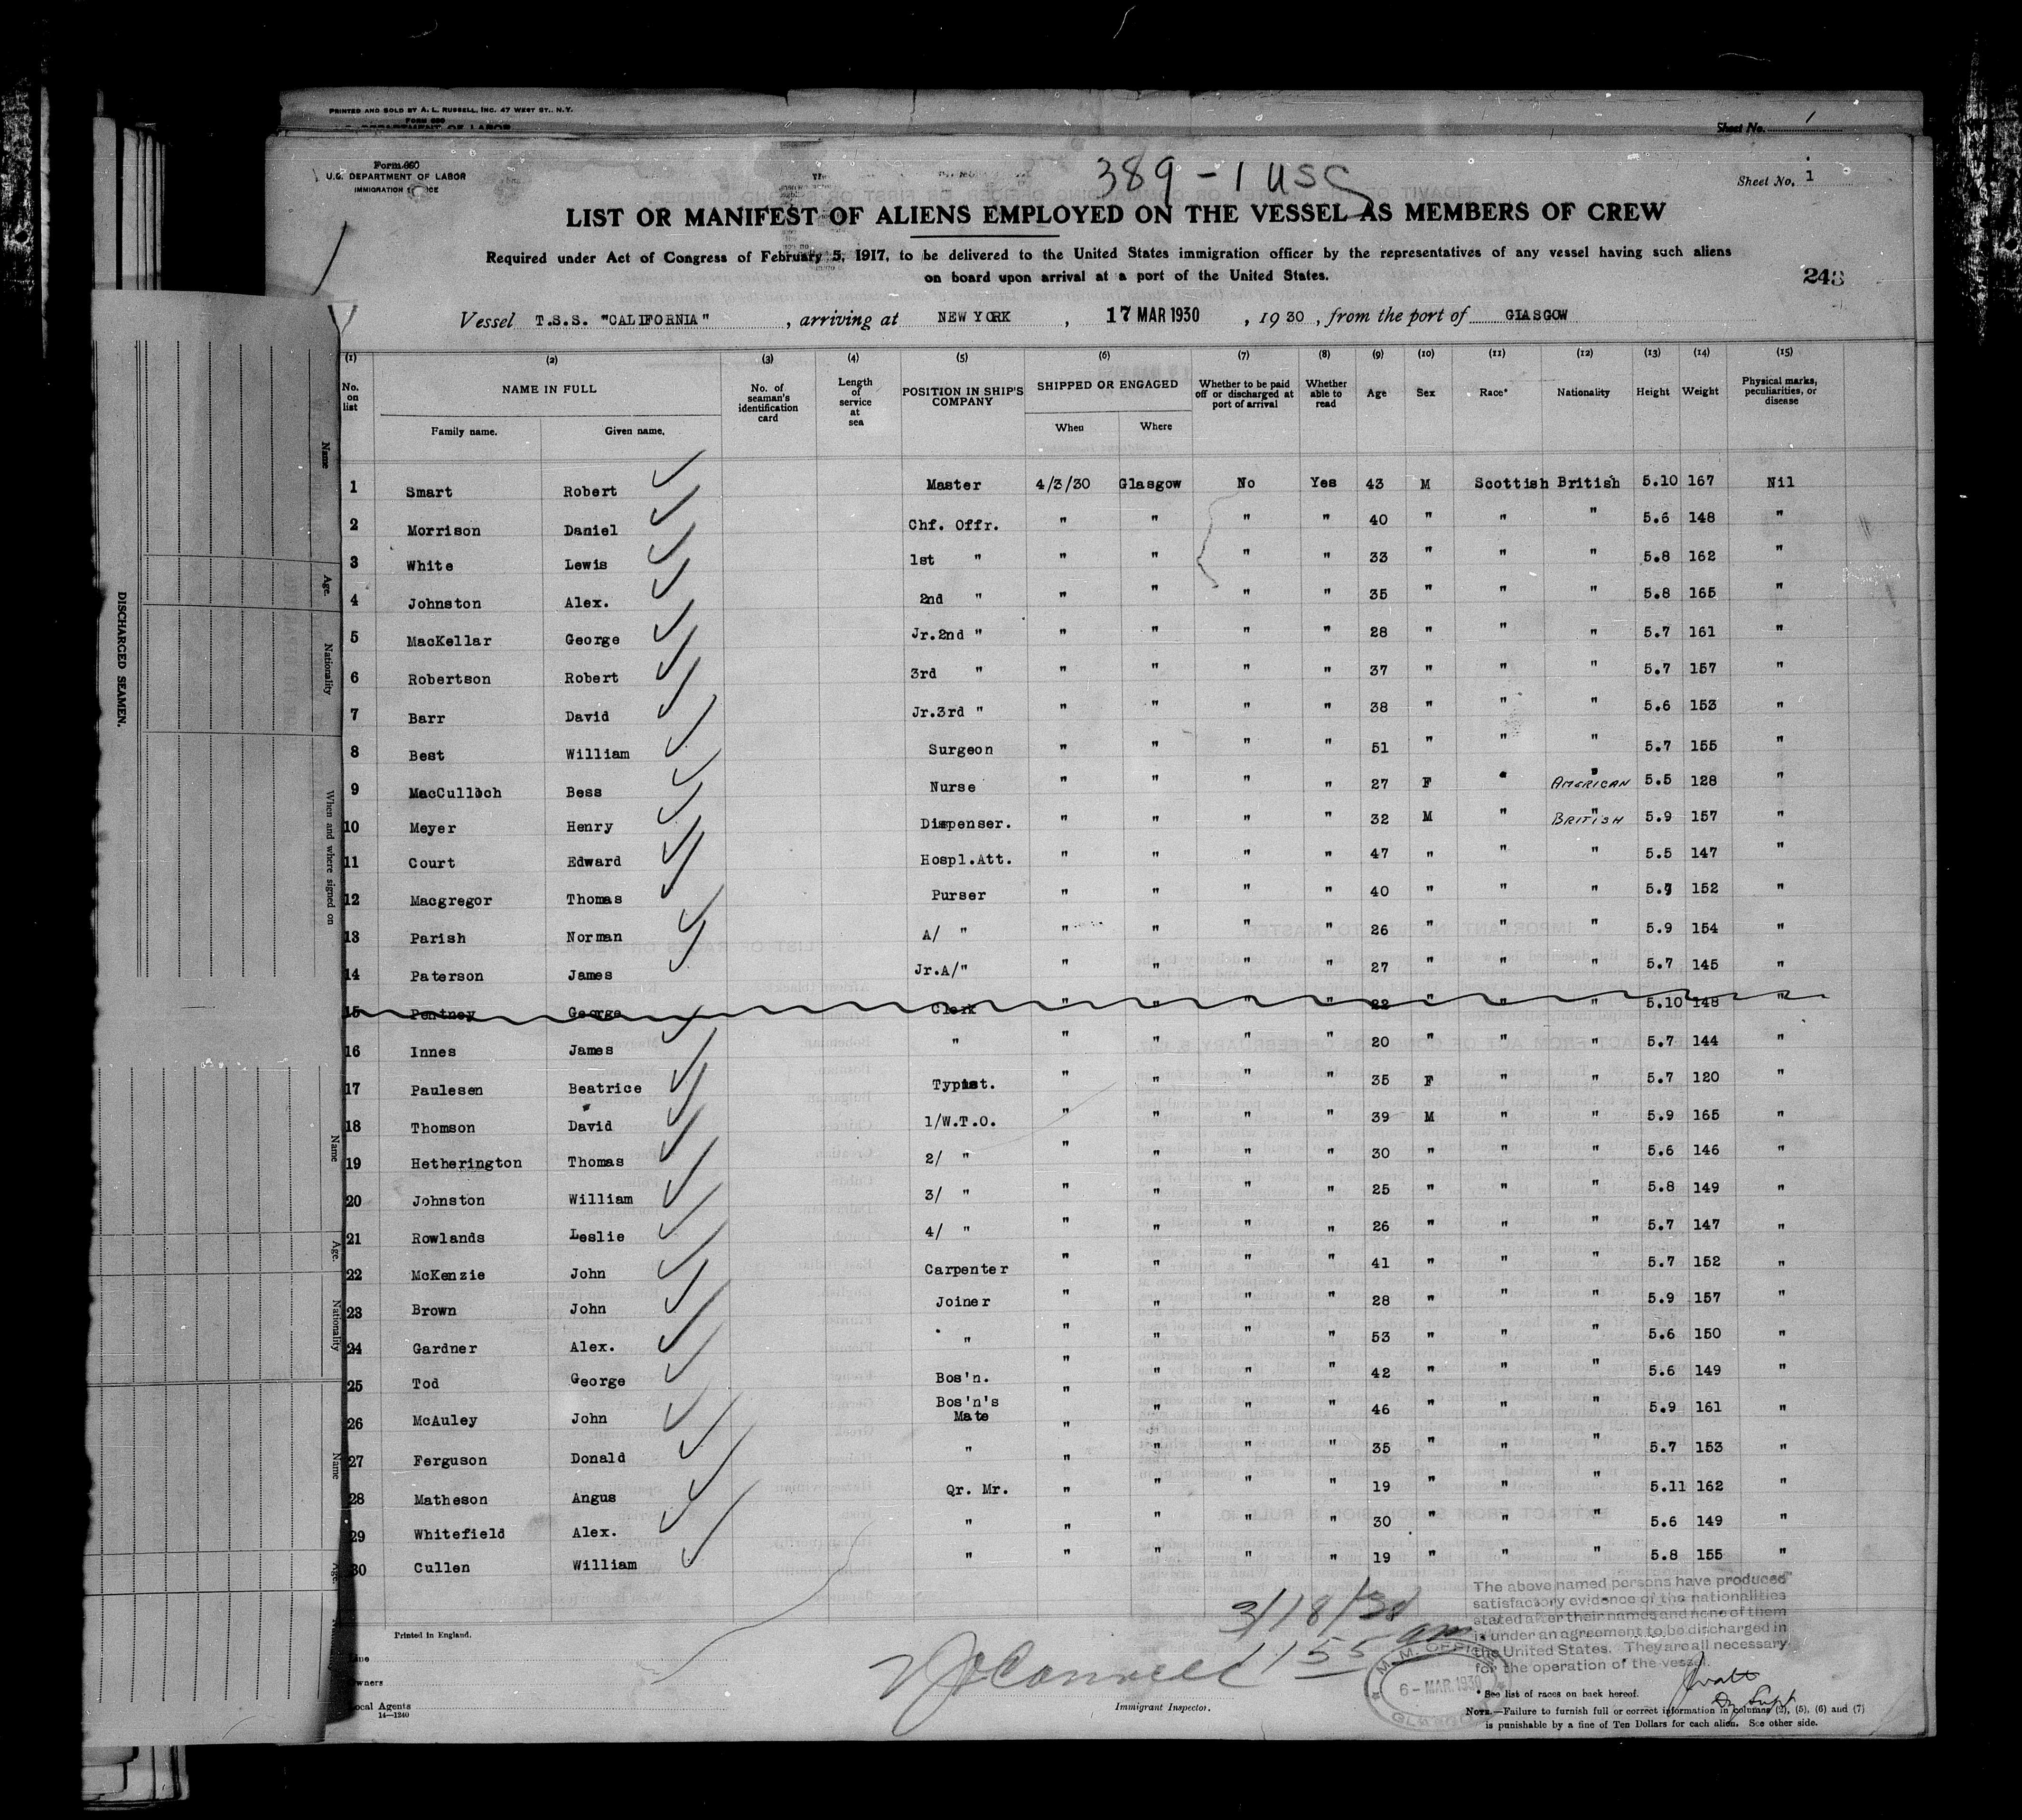 PRINTED AND SOLD BY A. L. RUSSELL, INC. 47 WEST ST., N.Y.
FORM 680
U.S. DEPARTMENT OF LABOR
Sheet No. 1
Form 680
U.S. DEPARTMENT OF LABOR
IMMIGRATION
389 - 1 USC
Sheet No. 1
LIST OR MANIFEST OF ALIENS EMPLOYED ON THE VESSEL AS MEMBERS OF CREW
Required under Act of Congress of February 5, 1917, to be delivered to the United States immigration officer by the representatives of any vessel having such aliens
on board upon arrival at a port of the United States.
243
Vessel T.S.S. "CALIFORNIA", arriving at NEW YORK, 17 MAR 1930, 1930, from the port of GLASGOW
(1) (2) (3) (4) (5) (6) (7) (8) (9) (10) (11) (12) (13) (14) (15)
No. on list NAME IN FULL Family name. Given name. No. of seaman's identification card Length of service at sea POSITION IN SHIP'S COMPANY SHIPPED OR ENGAGED When Where Whether to be paid off or discharged at port of arrival Whether able to read Age Sex Race* Nationality Height Weight Physical marks, peculiarities, or disease
1 Smart Robert Master 4/3/30 Glasgow No Yes 43 M Scottish British 5.10 167 Nil
2 Morrison Daniel Chf. Offr. " " " " 40 " " " 5.6 148 "
3 White Lewis 1st " " " " " 33 " " " 5.8 162 "
4 Johnston Alex. 2nd " " " " " 35 " " " 5.8 165 "
5 MacKellar George Jr.2nd " " " " " 28 " " " 5.7 161 "
6 Robertson Robert 3rd " " " " " 37 " " " 5.7 157 "
7 Barr David Jr.3rd " " " " " 38 " " " 5.6 153 "
8 Best William Surgeon " " " " 51 " " " 5.7 155 "
9 MacCulloch Bess Nurse " " " " 27 F " " AMERICAN 5.5 128 "
10 Meyer Henry Dispenser. " " " " 32 M " " BRITISH 5.9 157 "
11 Court Edward Hospl.Att. " " " " 47 " " " 5.5 147 "
12 Macgregor Thomas Purser " " " " 40 " " " 5.7 152 "
13 Parish Norman A/ " " " " " 26 " " " 5.9 154 "
14 Paterson James Jr.A/" " " " " 27 " " " 5.7 145 "
15 Pentney George Clerk " " " " 22 " " " 5.10 148 "
16 Innes James " " " " " 20 " " " 5.7 144 "
17 Paulesen Beatrice Typist. " " " " 35 F " " 5.7 120 "
18 Thomson David 1/W.T.O. " " " " 39 M " " 5.9 165 "
19 Hetherington Thomas 2/ " " " " " 30 " " " 5.6 146 "
20 Johnston William 3/ " " " " " 25 " " " 5.8 149 "
21 Rowlands Leslie 4/ " " " " " 26 " " " 5.7 147 "
22 McKenzie John Carpenter " " " " 41 " " " 5.7 152 "
23 Brown John Joiner " " " " 28 " " " 5.9 157 "
24 Gardner Alex. " " " " " 53 " " " 5.6 150 "
25 Tod George Bos'n. " " " " 42 " " " 5.6 149 "
26 McAuley John Bos'n's Mate " " " " 46 " " " 5.9 161 "
27 Ferguson Donald " " " " " 35 " " " 5.7 153 "
28 Matheson Angus Qr. Mr. " " " " 19 " " " 5.11 162 "
29 Whitefield Alex. " " " " " 30 " " " 5.6 149 "
30 Cullen William " " " " " 19 " " " 5.8 155 "
The above named persons have produced
satisfactory evidence of the nationalities
stated after their names and none of them
is under an agreement to be discharged in
the United States. They are all necessary
for the operation of the vessel.
3/18/30
1155 am
M. M. OFFICE
6 - MAR 1930
GLASGOW
Printed in England.
Owners
Local Agents
14—1240
Immigrant Inspector.
* See list of races on back hereof.
NOTE.—Failure to furnish full or correct information in columns (2), (5), (6) and (7)
is punishable by a fine of Ten Dollars for each alien. See other side.
DISCHARGED SEAMEN.
Name
Age.
Nationality
When and where signed on
Name
Age.
Nationality
Name
Age.